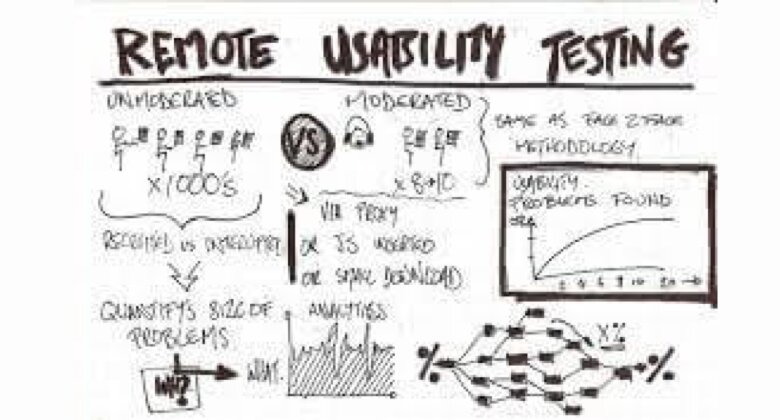 REMOTE USABILITY TESTING
UNMODERATED
x1000's
VS
MODERATED
x 8→10
SAME AS FACE 2 FACE
METHODOLOGY
VIA PROXY
OR JS INSERTED
OR SMALL DOWNLOAD
USABILITY
PROBLEMS FOUND
2 4 6 8 10 20
VS
QUANTIFY'S SIZE OF
PROBLEMS
WHY?
WHAT
ANALYTICS
%
X%
%